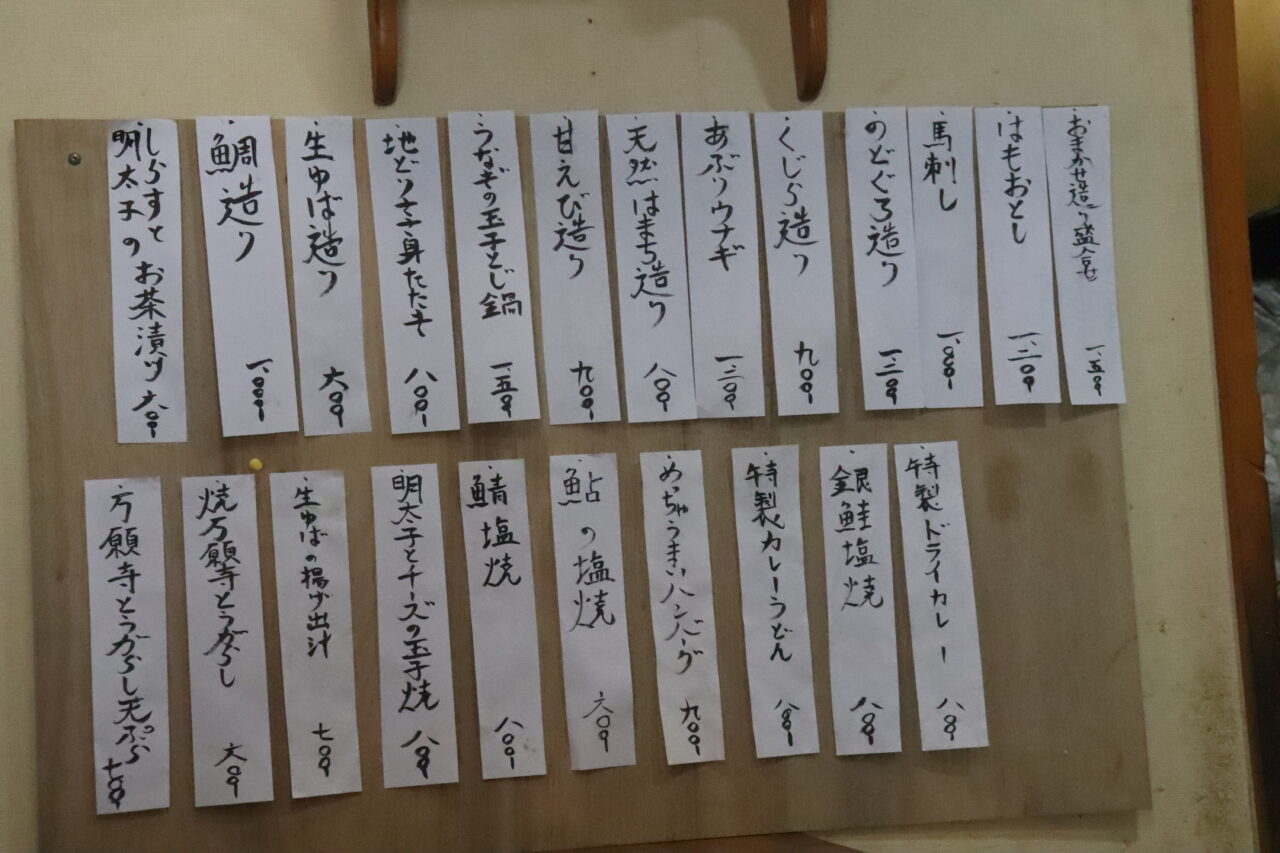 おまかせ造り盛合せ 一、五〇〇
はもおとし 一、二〇〇
馬刺し 一、〇〇〇
のどぐろ造り 一、三〇〇
くじら造り 九〇〇
あぶりウナギ 一、三〇〇
天然はまち造り 八〇〇
甘えび造り 九〇〇
うなぎの玉子とじ鍋 一、五〇〇
地どりささ身たたき 八〇〇
生ゆば造り 六〇〇
鯛造り 一、〇〇〇
しらすと
明太子のお茶漬け 六〇〇
特製ドライカレー 八〇〇
銀鮭塩焼 八〇〇
特製カレーうどん 八〇〇
めっちゃうまいハンバーグ 九〇〇
鮎の塩焼 六〇〇
鯖塩焼 八〇〇
明太子とチーズの玉子焼 八〇〇
生ゆばの揚げ出汁 七〇〇
焼万願寺とうがらし 六〇〇
万願寺とうがらし天ぷら 七〇〇